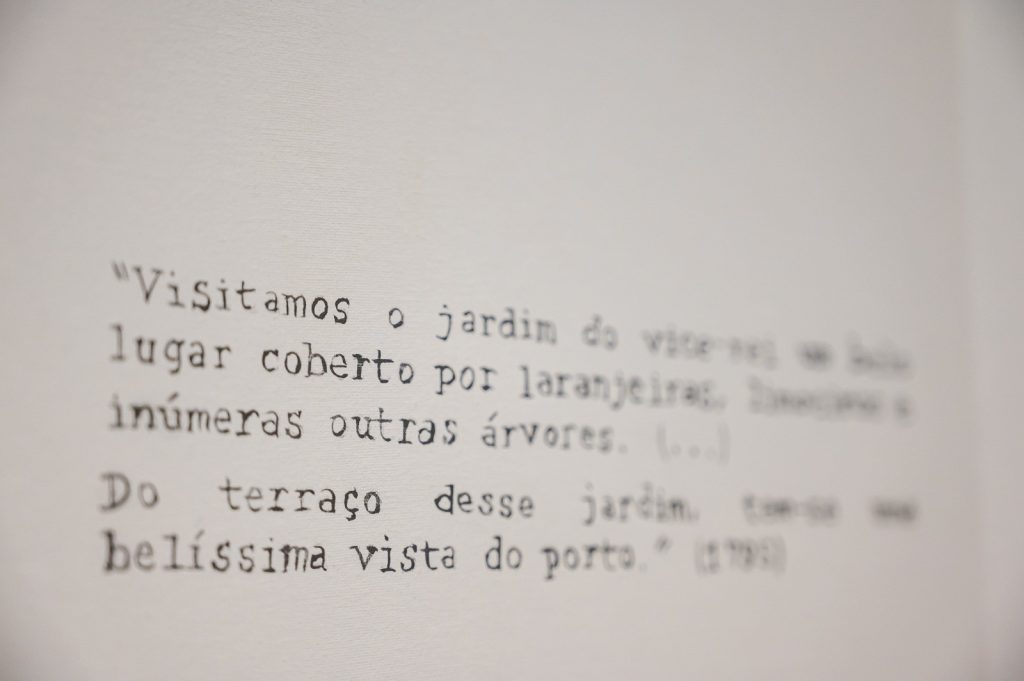 "Visitamos o jardim do vice-rei, um belo
lugar coberto por laranjeiras, limoeiros e
inúmeras outras árvores. (...)
Do terraço desse jardim, tem-se uma
belíssima vista do porto."